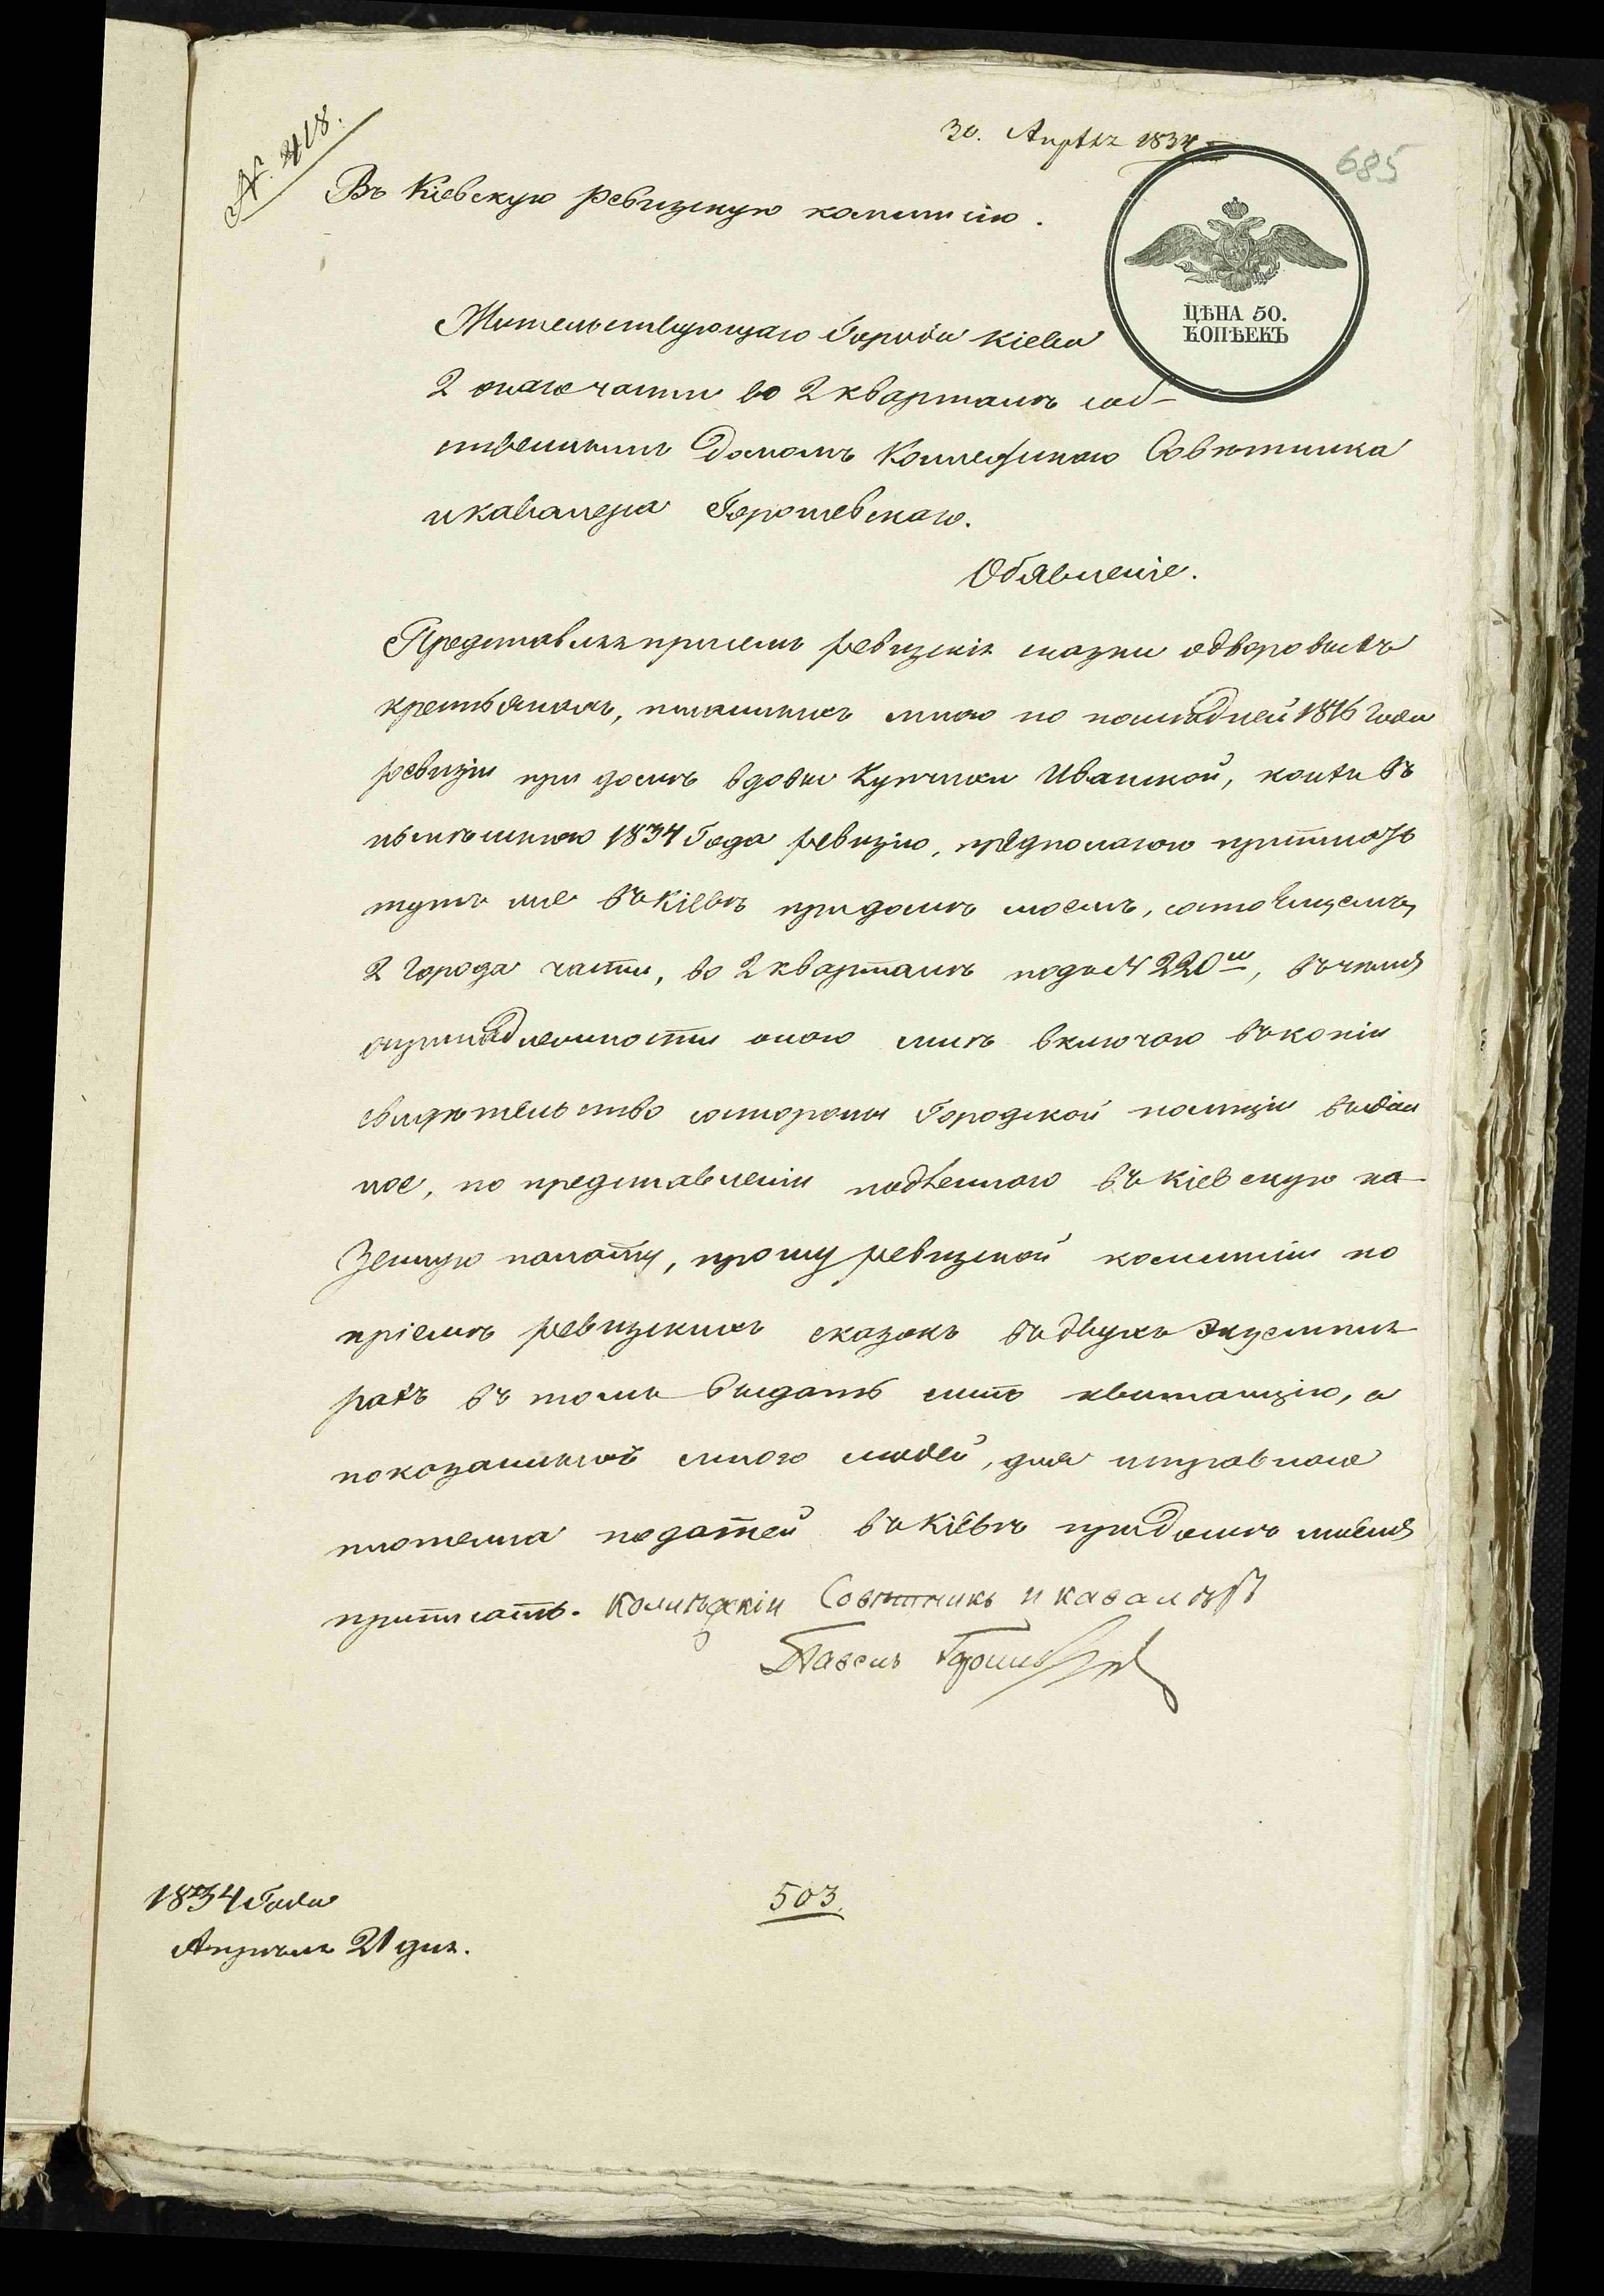 № 418.
30. Апрѣля 1834
685
Въ Кіевскую ревизскую комисію.
ЦѢНА 50.
КОПѢЕКЪ
Жительствующаго Города Кіева
2 оного части во 2 кварталѣ соб-
ственнымъ Домомъ Коллежскаго Совѣтника
и кавалера
Обявленіе.
Представляя присемъ ревизскія сказки о дворовыхъ
крестьянахъ, писанныхъ мною по последней 1816 Года
ревизіи при домѣ вдовы Купчихи Ивашкой, коихъ въ
нынѣшнюю 1834 Года ревизію, предполагаю приписать
тутъ же въ Кіевѣ при домѣ моемъ, состоящемъ
2 Города части, во 2 кварталѣ подъ № 220ш, въ чемъ
о принадлежности оного мнѣ включаю въ копіи
свидѣтельство со стороны Городской полиціи выдан
ное, по представленіи подленного въ Кіевскую ка-
зенную палату, прошу ревизской комисіи по
пріемѣ ревизскихъ сказокъ въ двухъ экземпля
рахъ въ томъ выдать мнѣ квитанцію, а
показанныхъ мною людей, для исправнаго
платежа податей въ Кіевѣ при домѣ моемъ
приписать. Колежскій Совѣтникъ и кавалеръ
Павелъ
1834 Года
Апрѣля 21 дня.
503.